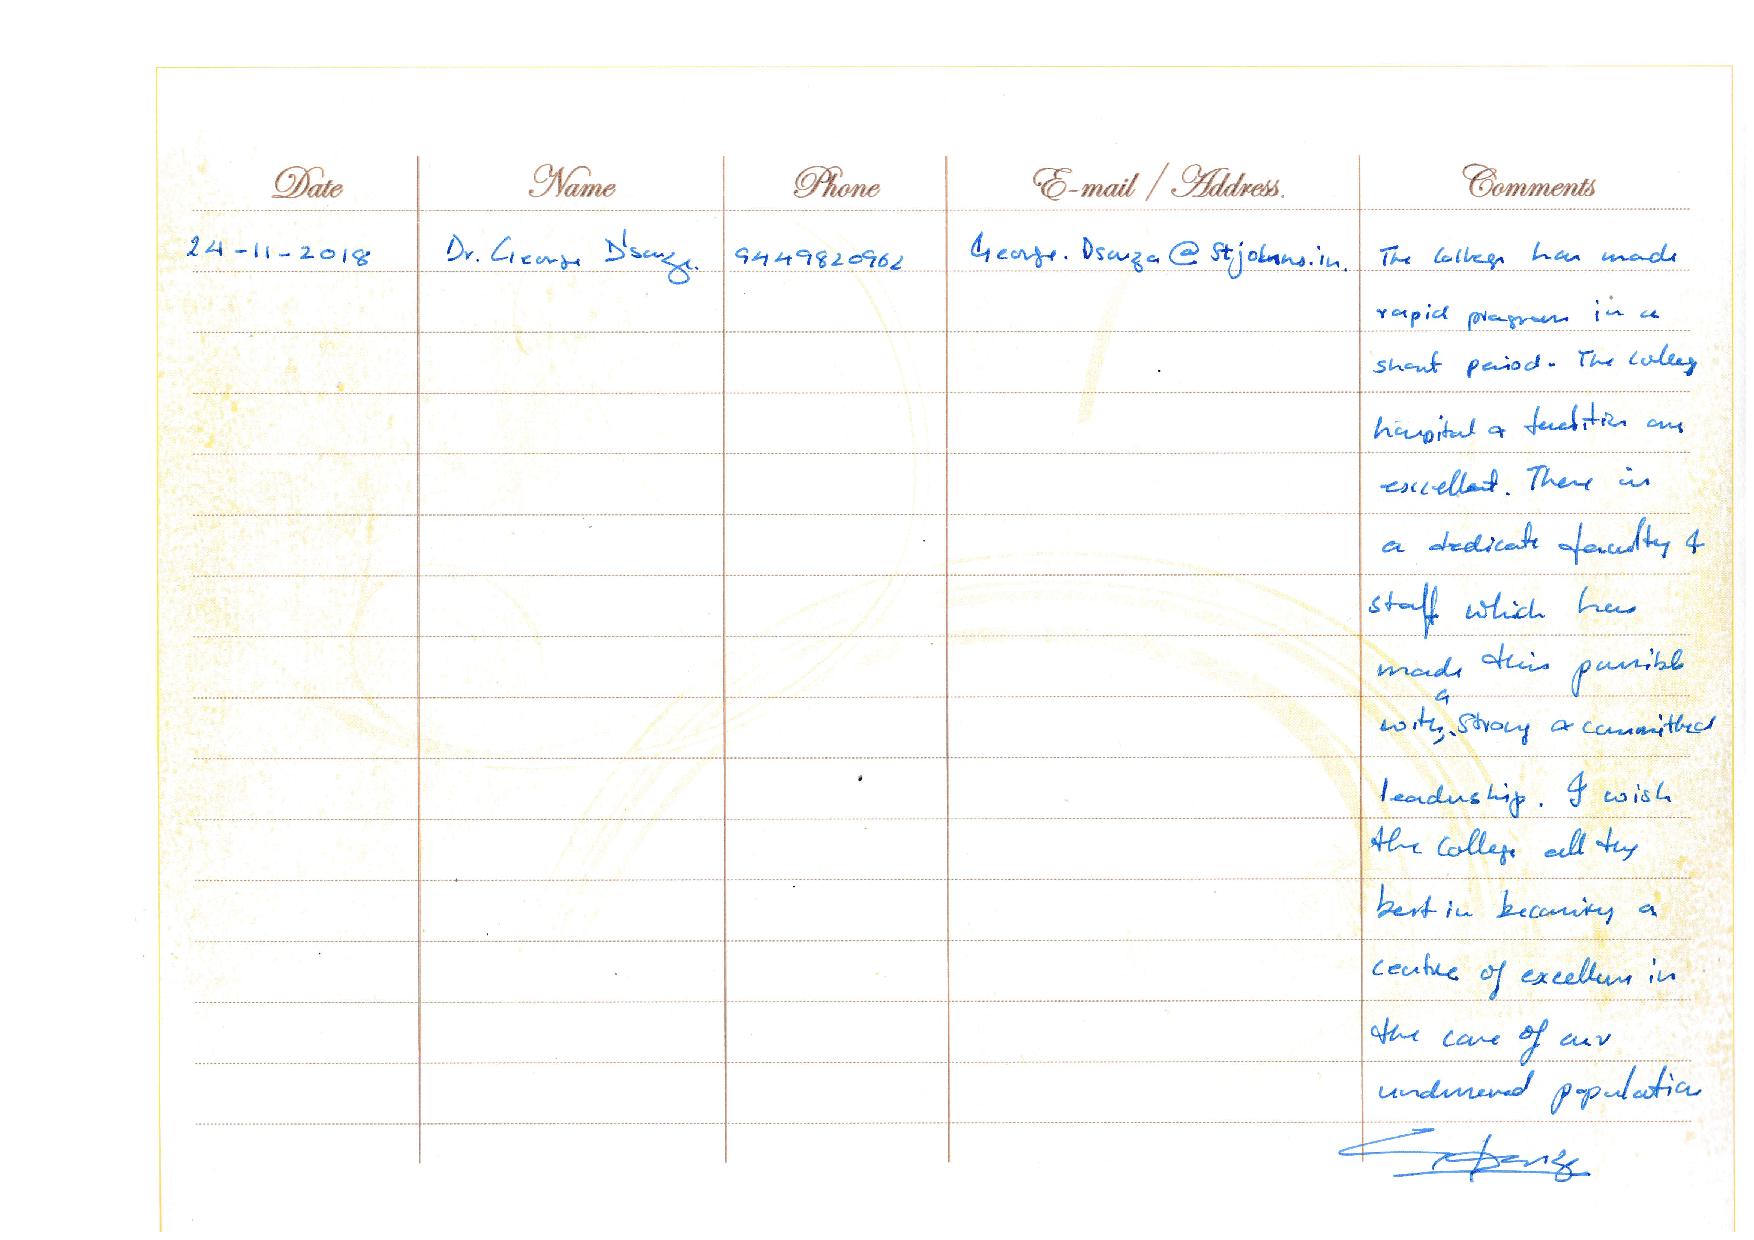 Date Name Phone E-mail / Address. Comments
24-11-2018 Dr. George D'souza. 9449820962 George.Dsouza@stjohns.in. The College has made
rapid progress in a
short period. The College
hospital & facilities are
excellent. There is
a dedicate faculty &
staff which has
made this possible
with a strong & committed
leadership. I wish
the College all the
best in becoming a
centre of excellence in
the care of our
underserved population